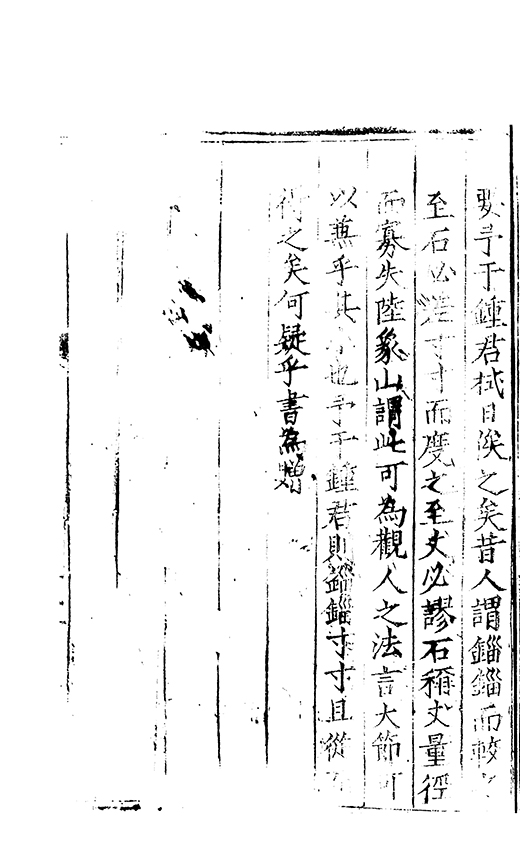 予于鍾君拭目俟之矣昔人謂錙錙而較之
至石必差寸寸而度之至丈必謬石稱丈量徑
而寡失陸象山謂此可為觀人之法言大節可
以蕪乎其也予于鍾君則錙錙寸寸且從
得之矣何疑乎書為贈